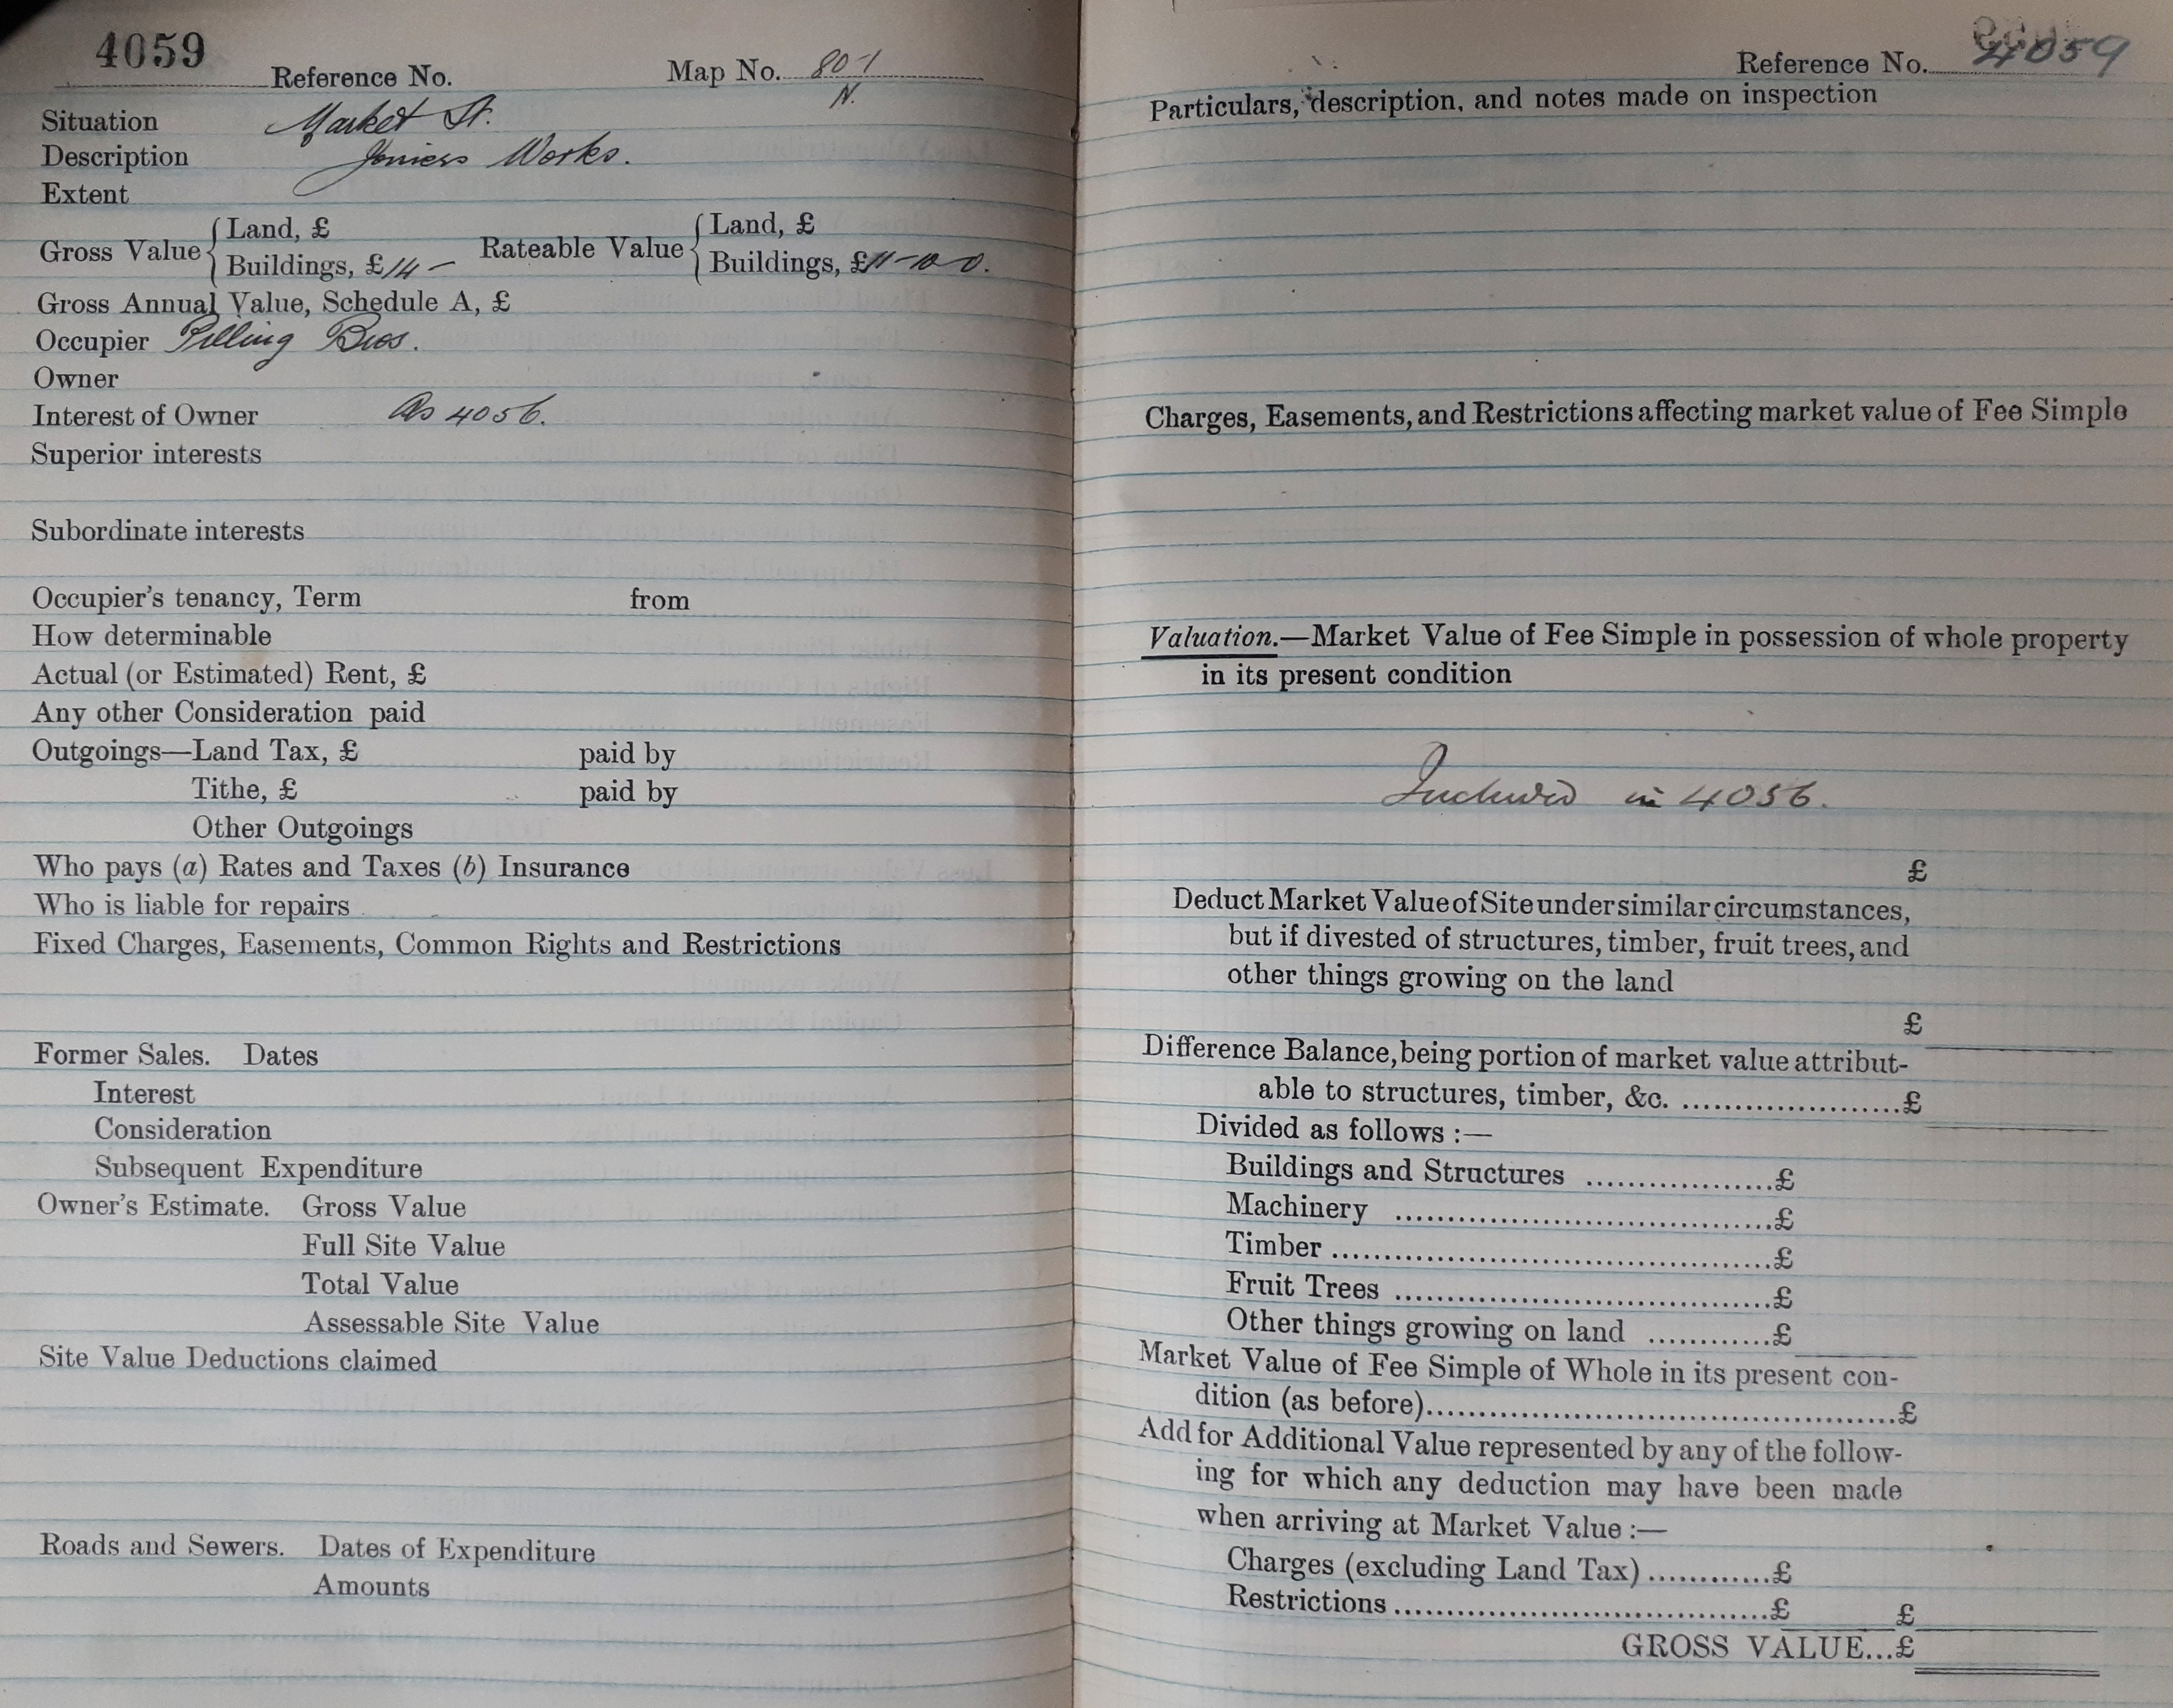 4059
Reference No. Map No. 80-1
N.
Situation Market St.
Description Joniers Works.
Extent
Gross Value { Land, £ Rateable Value { Land, £
Buildings, £ 14 – Buildings, £ 11-10-0.
Gross Annual Value, Schedule A, £
Occupier Pilling Bros.
Owner
Interest of Owner As 4056.
Superior interests
Subordinate interests
Occupier's tenancy, Term from
How determinable
Actual (or Estimated) Rent, £
Any other Consideration paid
Outgoings—Land Tax, £ paid by
Tithe, £ paid by
Other Outgoings
Who pays (a) Rates and Taxes (b) Insurance
Who is liable for repairs
Fixed Charges, Easements, Common Rights and Restrictions
Former Sales. Dates
Interest
Consideration
Subsequent Expenditure
Owner's Estimate. Gross Value
Full Site Value
Total Value
Assessable Site Value
Site Value Deductions claimed
Roads and Sewers. Dates of Expenditure
Amounts
Reference No. 4059
Particulars, description, and notes made on inspection
Charges, Easements, and Restrictions affecting market value of Fee Simple
Valuation.—Market Value of Fee Simple in possession of whole property
in its present condition
Included in 4056.
£
Deduct Market Value of Site under similar circumstances,
but if divested of structures, timber, fruit trees, and
other things growing on the land
£
Difference Balance, being portion of market value attribut-
able to structures, timber, &c. .....................£
Divided as follows :—
Buildings and Structures ..................£
Machinery .....................................£
Timber ...........................................£
Fruit Trees .....................................£
Other things growing on land ............£
Market Value of Fee Simple of Whole in its present con-
dition (as before)..............................................£
Add for Additional Value represented by any of the follow-
ing for which any deduction may have been made
when arriving at Market Value :—
Charges (excluding Land Tax) ............£
Restrictions .....................................£ £
GROSS VALUE...£